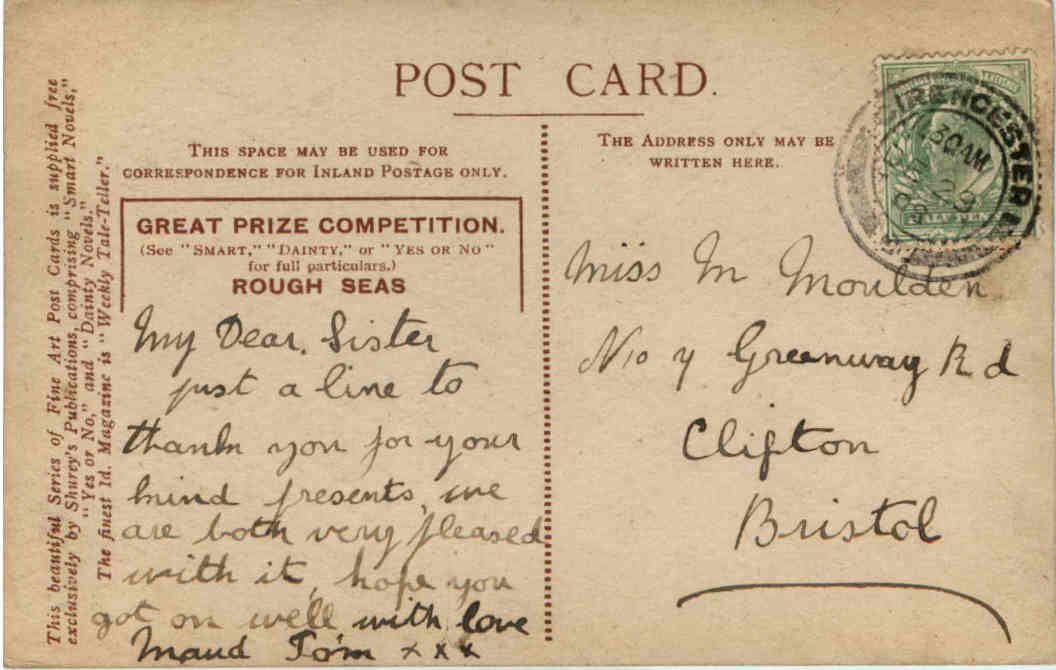 POST CARD.
THIS SPACE MAY BE USED FOR
CORRESPONDENCE FOR INLAND POSTAGE ONLY.
THE ADDRESS ONLY MAY BE
WRITTEN HERE.
This beautiful Series of Fine Art Post Cards is supplied free
exclusively by Shurey's Publications, comprising "Smart Novels,"
"Yes or No," and "Dainty Novels."
The finest 1d. Magazine is "Weekly Tale-Teller."
GREAT PRIZE COMPETITION.
(See "SMART," "DAINTY," or "YES OR NO"
for full particulars.)
ROUGH SEAS
My Dear. Sister
just a line to
thank you for your
kind presents, we
are both very pleased
with it, hope you
got on well with love
Maud Tom x x x
Miss M Moulden
No 7 Greenway Rd
Clifton
Bristol
IRENCESTER
30AM